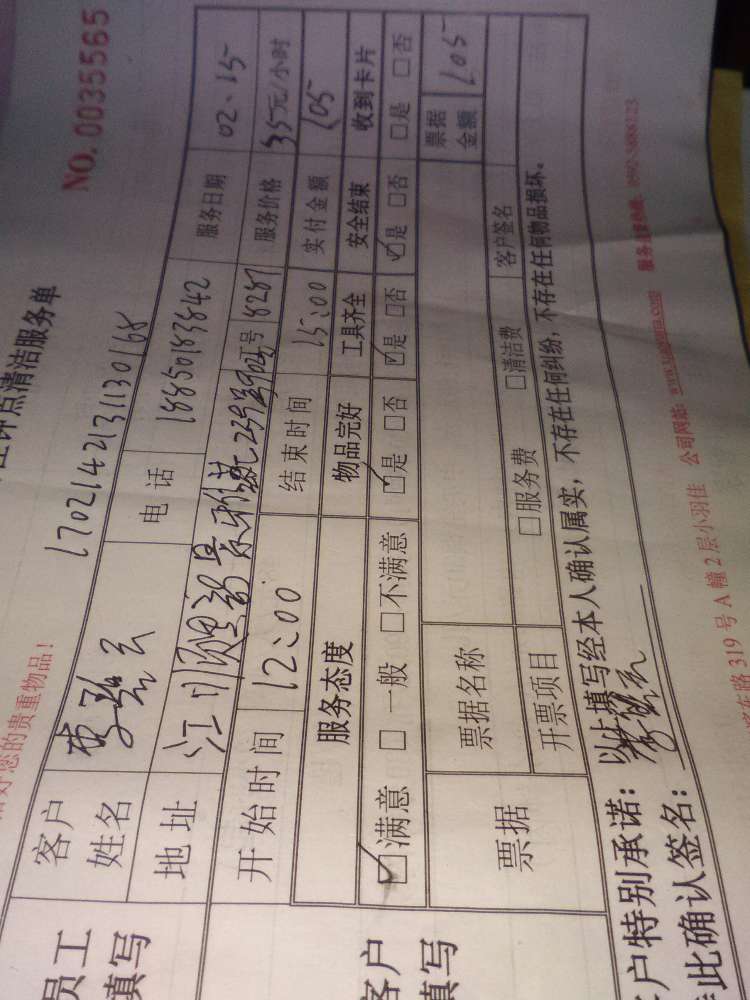 好您的贵重物品!
钟点清洁服务单
NO. 0035565
1702142131130168
员工
填写
客户
姓名
李
云
电话
18850183842
服务日期
02.15
地址
江
工号
8287
服务价格
35元/小时
开始时间
12:00
结束时间
15:00
实付金额
105
客户
填写
服务态度
物品完好
工具齐全
安全结束
收到卡片
☑满意 □一般 □不满意
☑是 □否
☑是 □否
☑是 □否
□是 □否
票据
票据名称
票据
金额
105
开票项目
□服务费 □清洁费
客户签名
户特别承诺:以上填写经本人确认属实,不存在任何纠纷,不存在任何物品损坏。
此确认签名:
东路 319 号 A 幢 2 层小羽佳 公司网站: